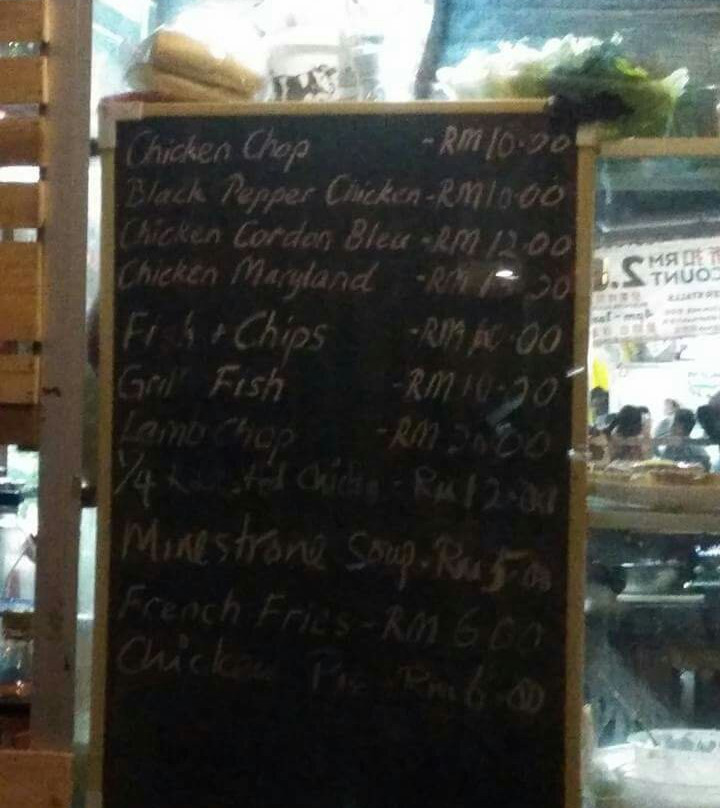 Chicken Chop - RM 10.00
Black Pepper Chicken - RM 10.00
Chicken Cordon Bleu - RM 12.00
Chicken Maryland - RM
Fish + Chips - RM 10.00
Grill Fish - RM 10.00
Lamb Chop - RM 20.00
1/4 Chicken - RM 12.00
Minestrone Soup - RM 5.00
French Fries - RM 6.00
Chicken Pie - RM 6.00
RM
COUNT 2.